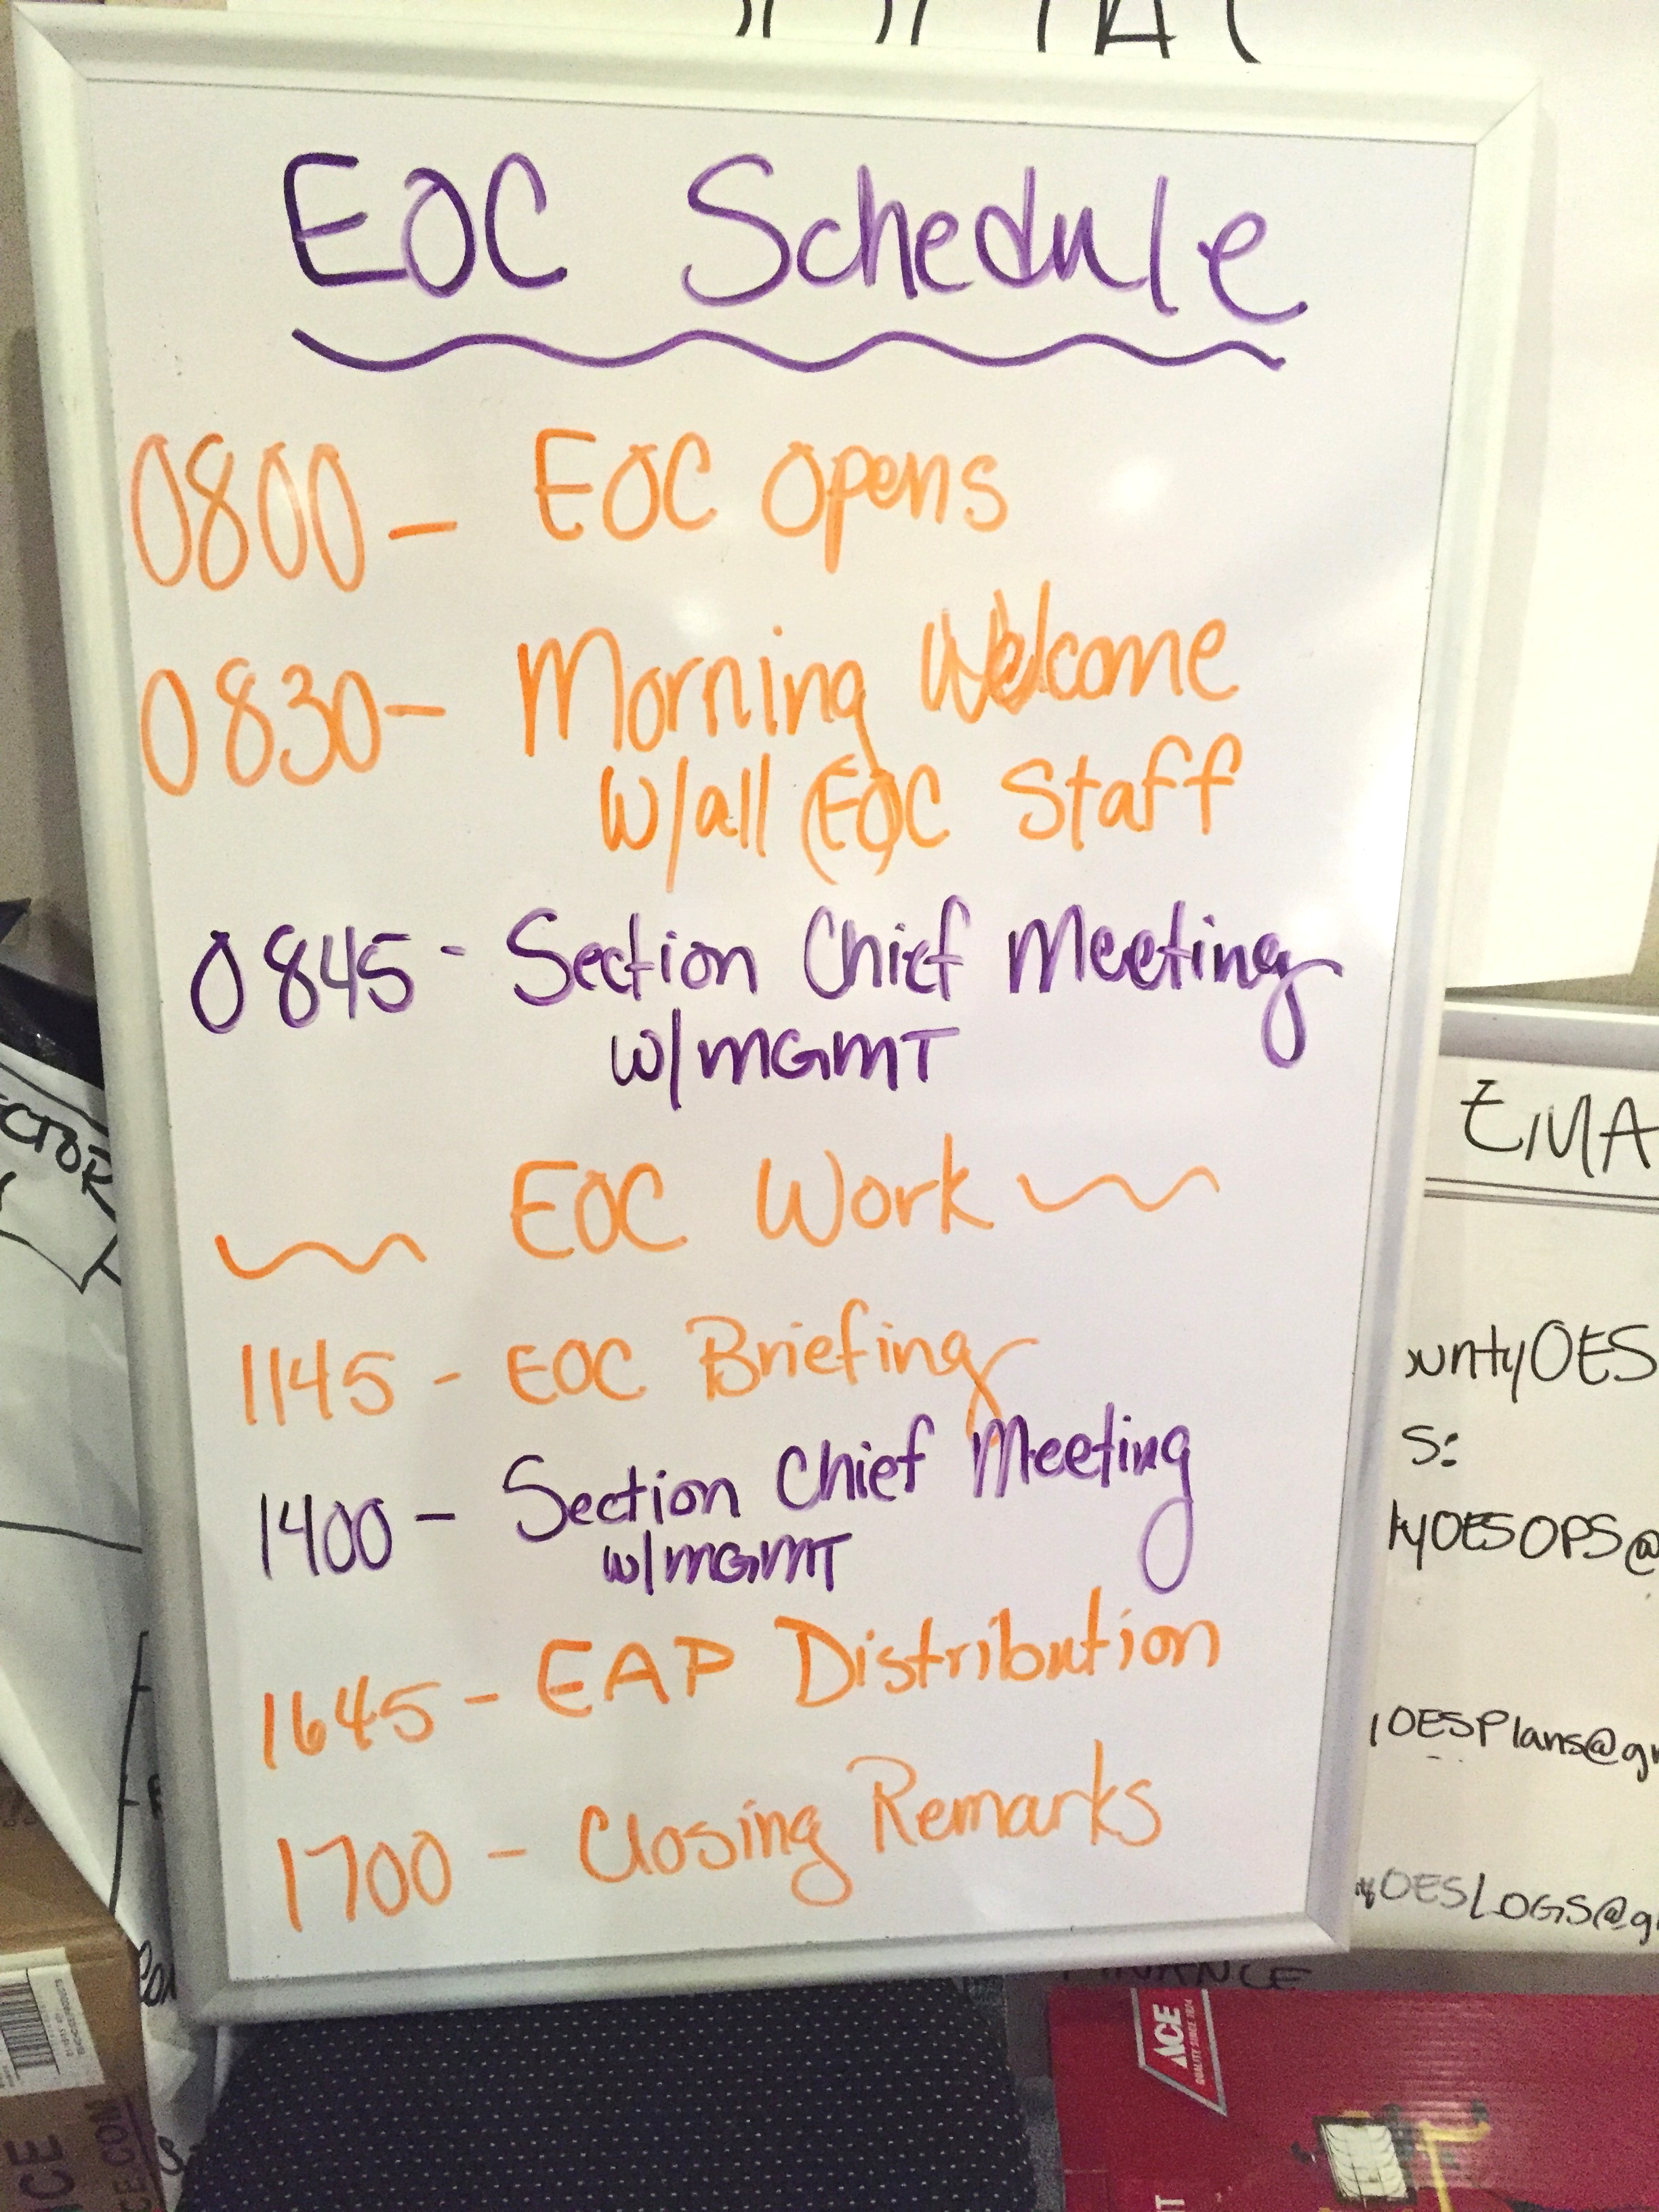 EOC Schedule
0800 - EOC Opens
0830 - Morning Welcome
w/all EOC Staff
0845 - Section Chief Meeting
w/MGMT
EOC Work
1145 - EOC Briefing
1400 - Section Chief Meeting
w/MGMT
1645 - EAP Distribution
1700 - Closing Remarks
EMA
ountyOES
s:
tyOESOPS@
yOESPlans@gm
tyOESLOGS@g
FINANCE
ACE
QUALITY SINCE 1924